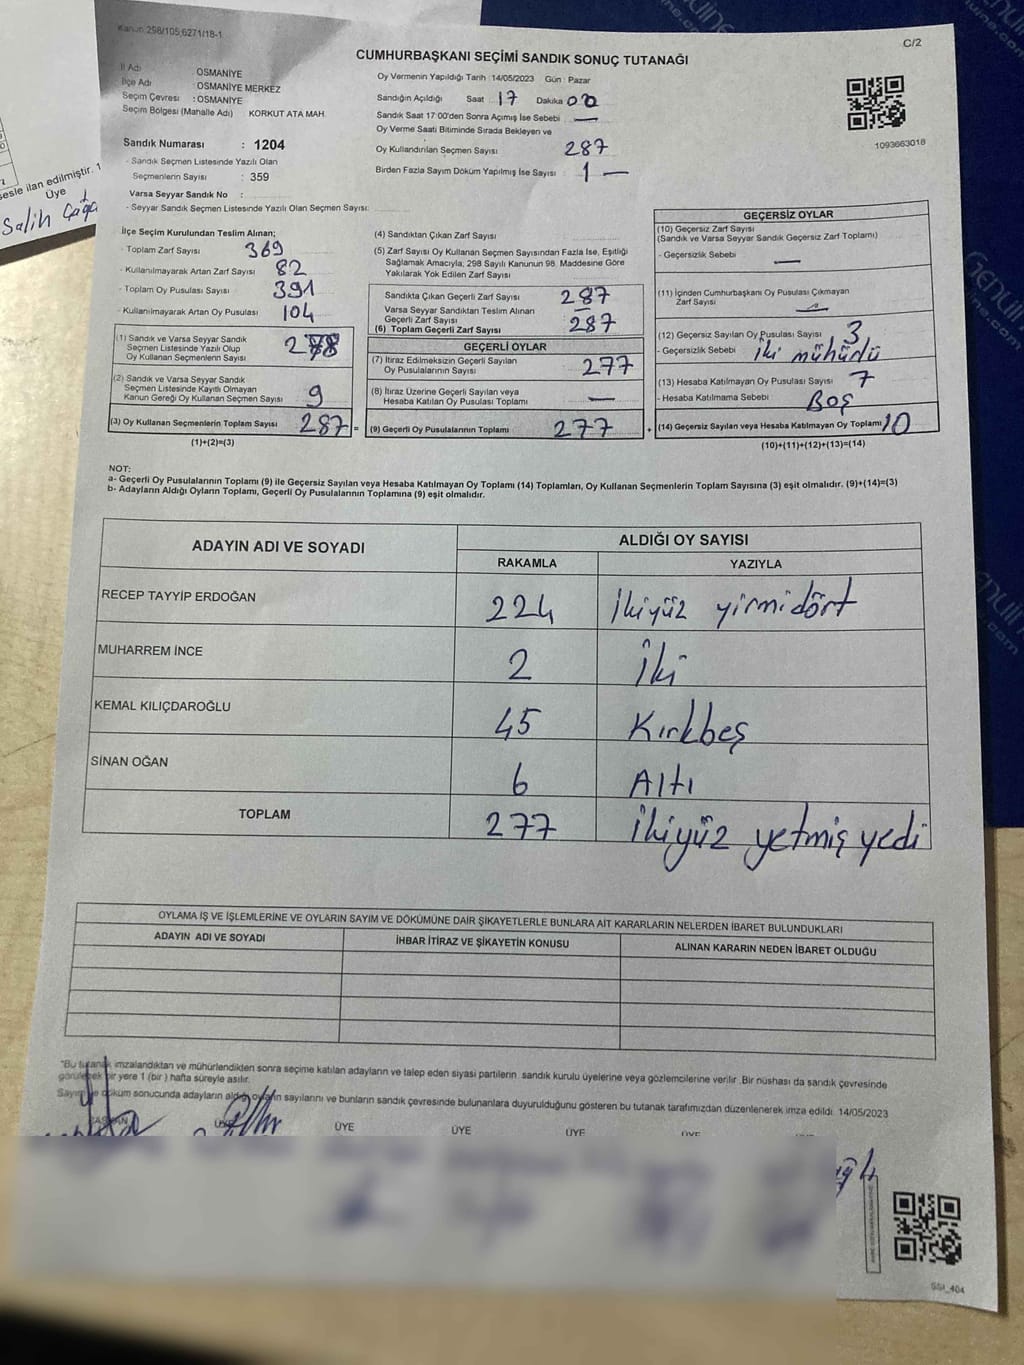 Kanun:298/105,6271/18-1
C/2
CUMHURBAŞKANI SEÇİMİ SANDIK SONUÇ TUTANAĞI
İl Adı OSMANİYE
İlçe Adı : OSMANİYE MERKEZ
Seçim Çevresi : OSMANİYE
Seçim Bölgesi (Mahalle Adı) KORKUT ATA MAH.
Sandık Numarası : 1204
- Sandık Seçmen Listesinde Yazılı Olan
Seçmenlerin Sayısı : 359
Varsa Seyyar Sandık No :
- Seyyar Sandık Seçmen Listesinde Yazılı Olan Seçmen Sayısı:
Oy Vermenin Yapıldığı Tarih : 14/05/2023 Gün : Pazar
Sandığın Açıldığı Saat 17 Dakika 00
Sandık Saat 17:00'den Sonra Açımış İse Sebebi —
Oy Verme Saati Bitiminde Sırada Bekleyen ve
Oy Kullandırılan Seçmen Sayısı 287
Birden Fazla Sayım Döküm Yapılmış İse Sayısı 1 —
1093663018
sesle ilan edilmiştir. 1
Üye
Salih
İlçe Seçim Kurulundan Teslim Alınan;
- Toplam Zarf Sayısı 369
- Kullanılmayarak Artan Zarf Sayısı 82
- Toplam Oy Pusulası Sayısı 391
- Kullanılmayarak Artan Oy Pusulası 104
(1) Sandık ve Varsa Seyyar Sandık
Seçmen Listesinde Yazılı Olup
Oy Kullanan Seçmenlerin Sayısı 278
(2) Sandık ve Varsa Seyyar Sandık
Seçmen Listesinde Kayıtlı Olmayan
Kanun Gereği Oy Kullanan Seçmen Sayısı 9
(3) Oy Kullanan Seçmenlerin Toplam Sayısı 287 =
(1)+(2)=(3)
(4) Sandıktan Çıkan Zarf Sayısı
(5) Zarf Sayısı Oy Kullanan Seçmen Sayısından Fazla İse, Eşitliği
Sağlamak Amacıyla, 298 Sayılı Kanunun 98. Maddesine Göre
Yakılarak Yok Edilen Zarf Sayısı
Sandıkta Çıkan Geçerli Zarf Sayısı 287
Varsa Seyyar Sandıktan Teslim Alınan
Geçerli Zarf Sayısı —
(6) Toplam Geçerli Zarf Sayısı 287
GEÇERLİ OYLAR
(7) İtiraz Edilmeksizin Geçerli Sayılan
Oy Pusulalarının Sayısı 277
(8) İtiraz Üzerine Geçerli Sayılan veya
Hesaba Katılan Oy Pusulası Toplamı —
(9) Geçerli Oy Pusulalarının Toplamı 277 +
GEÇERSİZ OYLAR
(10) Geçersiz Zarf Sayısı
(Sandık ve Varsa Seyyar Sandık Geçersiz Zarf Toplamı)
- Geçersizlik Sebebi —
(11) İçinden Cumhurbaşkanı Oy Pusulası Çıkmayan
Zarf Sayısı
(12) Geçersiz Sayılan Oy Pusulası Sayısı 3
- Geçersizlik Sebebi iki mühürlü
(13) Hesaba Katılmayan Oy Pusulası Sayısı 7
- Hesaba Katılmama Sebebi Boş
(14) Geçersiz Sayılan veya Hesaba Katılmayan Oy Toplamı 10
(10)+(11)+(12)+(13)=(14)
NOT:
a- Geçerli Oy Pusulalarının Toplamı (9) ile Geçersiz Sayılan veya Hesaba Katılmayan Oy Toplamı (14) Toplamları, Oy Kullanan Seçmenlerin Toplam Sayısına (3) eşit olmalıdır. (9)+(14)=(3)
b- Adayların Aldığı Oyların Toplamı, Geçerli Oy Pusulalarının Toplamına (9) eşit olmalıdır.
ADAYIN ADI VE SOYADI ALDIĞI OY SAYISI
RAKAMLA YAZIYLA
RECEP TAYYİP ERDOĞAN 224 İkiyüz yirmidört
MUHARREM İNCE 2 İki
KEMAL KILIÇDAROĞLU 45 Kırkbeş
SİNAN OĞAN 6 Altı
TOPLAM 277 İkiyüz yetmiş yedi
OYLAMA İŞ VE İŞLEMLERİNE VE OYLARIN SAYIM VE DÖKÜMÜNE DAİR ŞİKAYETLERLE BUNLARA AİT KARARLARIN NELERDEN İBARET BULUNDUKLARI
ADAYIN ADI VE SOYADI İHBAR İTİRAZ VE ŞİKAYETİN KONUSU ALINAN KARARIN NEDEN İBARET OLDUĞU
"Bu tutanak imzalandıktan ve mühürlendikten sonra seçime katılan adayların ve talep eden siyasi partilerin sandık kurulu üyelerine veya gözlemcilerine verilir .Bir nüshası da sandık çevresinde
görülecek bir yere 1 (bir ) hafta süreyle asılır.
Sayım ve döküm sonucunda adayların aldığı oyların sayılarını ve bunların sandık çevresinde bulunanlara duyurulduğunu gösteren bu tutanak tarafımızdan düzenlenerek imza edildi. 14/05/2023
BAŞKAN ÜYE ÜYE ÜYE ÜYE
SSI_404
Genuine